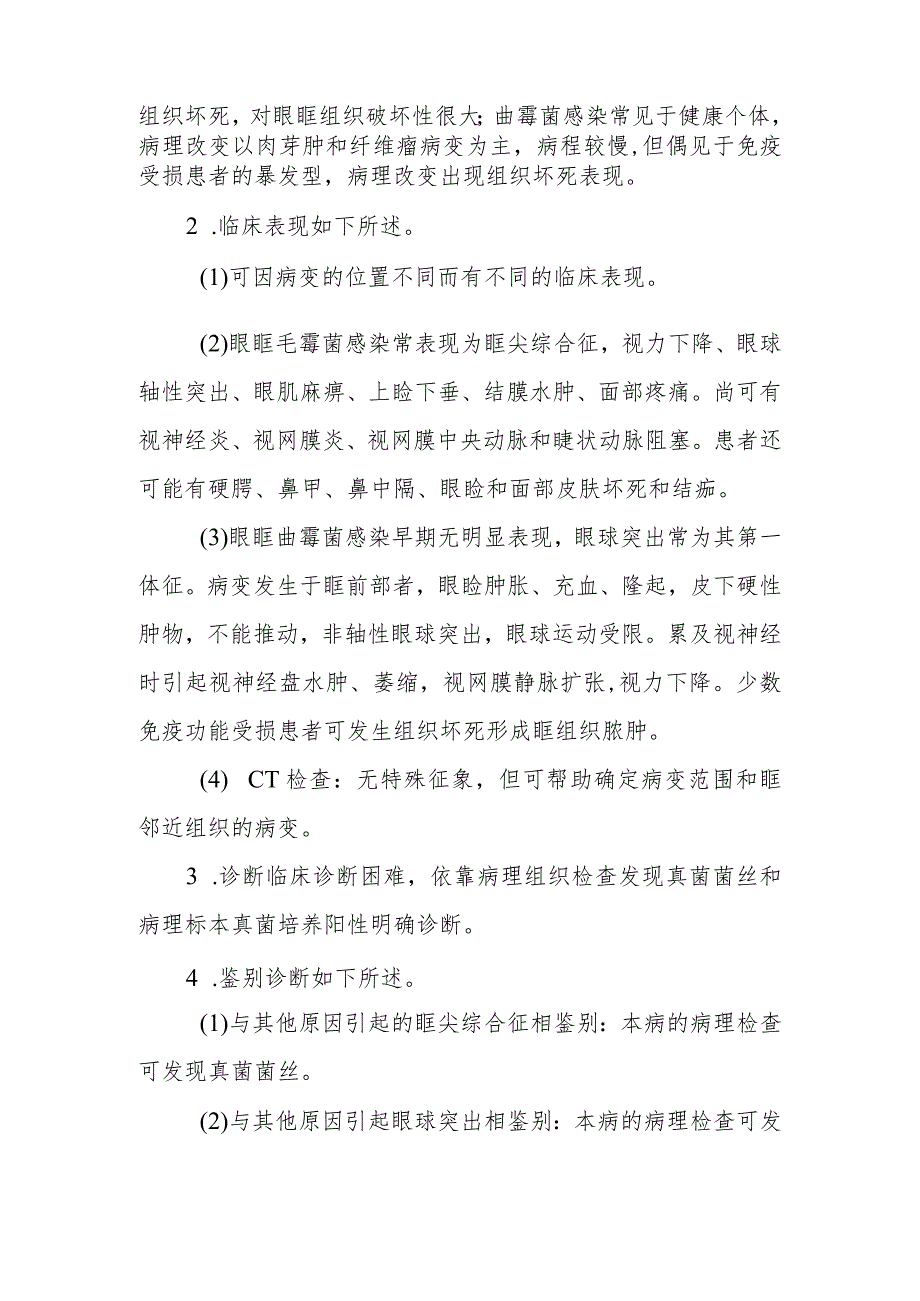 组织坏死，对眼眶组织破坏性很大；曲霉菌感染常见于健康个体，
病理改变以肉芽肿和纤维瘤病变为主，病程较慢,但偶见于免疫
受损患者的暴发型，病理改变出现组织坏死表现。
2 .临床表现如下所述。
(1)可因病变的位置不同而有不同的临床表现。
(2)眼眶毛霉菌感染常表现为眶尖综合征，视力下降、眼球
轴性突出、眼肌麻痹、上睑下垂、结膜水肿、面部疼痛。尚可有
视神经炎、视网膜炎、视网膜中央动脉和睫状动脉阻塞。患者还
可能有硬腭、鼻甲、鼻中隔、眼睑和面部皮肤坏死和结痂。
(3)眼眶曲霉菌感染早期无明显表现，眼球突出常为其第一
体征。病变发生于眶前部者，眼睑肿胀、充血、隆起，皮下硬性
肿物，不能推动，非轴性眼球突出，眼球运动受限。累及视神经
时引起视神经盘水肿、萎缩，视网膜静脉扩张,视力下降。少数
免疫功能受损患者可发生组织坏死形成眶组织脓肿。
(4) CT检查：无特殊征象，但可帮助确定病变范围和眶
邻近组织的病变。
3 .诊断临床诊断困难，依靠病理组织检查发现真菌菌丝和
病理标本真菌培养阳性明确诊断。
4 .鉴别诊断如下所述。
(1)与其他原因引起的眶尖综合征相鉴别：本病的病理检查
可发现真菌菌丝。
(2)与其他原因引起眼球突出相鉴别：本病的病理检查可发